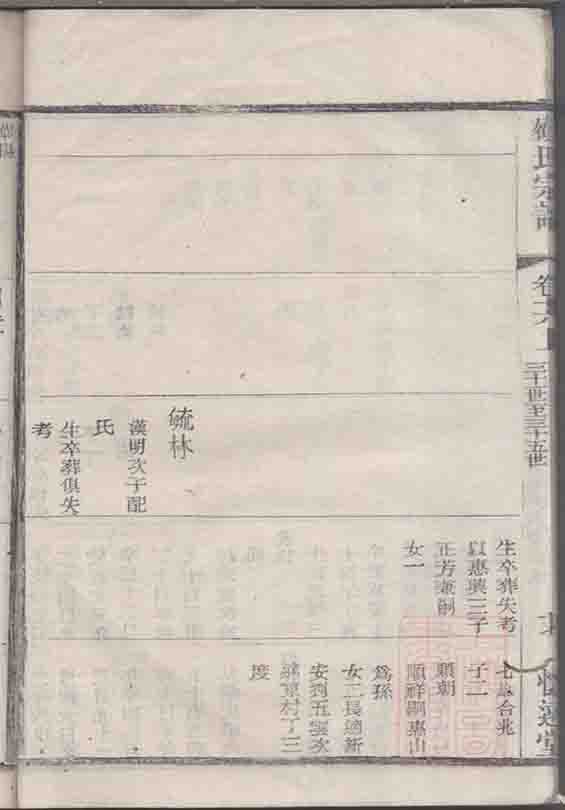 氏宗譜
卷六上
三十一世至三十五世
毓林
漢明次子配
氏
生卒葬俱失
考
生卒葬失考
以惠興三子
正芳兼嗣
女一
七出合兆
子二
順朝
順祥嗣惠山
爲孫
女二長適新
安劉五次
村丁三
度